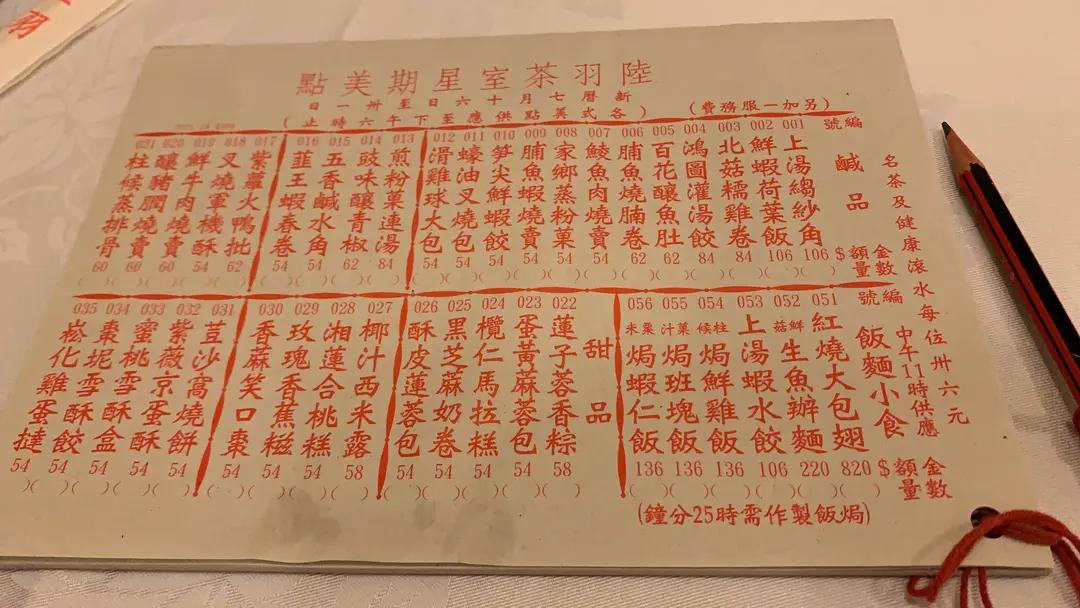 陸羽茶室星期美點
新曆七月十六日至卅一日
(另加一服務費)
(各式美點供應至下午六時止)
名茶及健康滾水每位卅六元
編號
鹹品
金額$
數量
001 上湯縐紗角 106
002 鮮蝦荷葉飯 106
003 北菇糯雞卷 84
004 鴻圖灌湯餃 84
005 百花釀魚肚 62
006 脯魚燒腩卷 62
007 鯪魚肉燒賣 54
008 家鄉蒸粉菓 54
009 脯魚蝦燒賣 54
010 笋尖鮮蝦餃 54
011 蠔油叉燒包 54
012 滑雞球大包 54
013 煎粉菓連湯 84
014 豉味釀青椒 62
015 五香鹹水角 54
016 韮王蝦春卷 54
017 紫蘿火鴨批 62
018 叉燒軍機酥 54
019 鮮牛肉燒賣 60
020 釀豬膶燒賣 60
021 柱候蒸排骨 60
編號
飯麵小食
中午11時供應
金額$
數量
051 紅燒大包翅 820
052 鮮菇生魚辦麵 220
053 上湯蝦水餃 106
054 柱候焗鮮雞飯 136
055 菓汁焗班塊飯 136
056 粟米焗蝦仁飯 136
(焗飯製作需時25分鐘)
甜品
022 蓮子蓉香粽 58
023 蛋黃麻蓉包 54
024 欖仁馬拉糕 54
025 黑芝麻奶卷 54
026 酥皮蓮蓉包 54
027 椰汁西米露 58
028 湘蓮合桃糕 54
029 玫瑰香蕉糍 54
030 香麻笑口棗 54
031 荳沙窩燒餅 54
032 紫薇京蛋酥 54
033 蜜桃雪酥盒 54
034 棗坭雪酥餃 54
035 崧化雞蛋撻 54